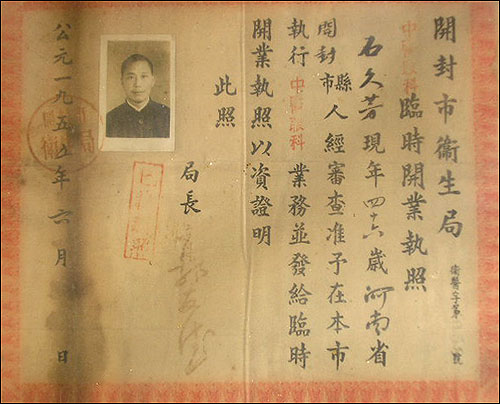 開封市衞生局
中醫眼科臨時開業執照
衞醫字第 號
石久芳現年四十六歲河南省
開封市縣人經審查准予在本市
執行中醫眼科業務並發給臨時
開業執照以資證明
此照
局長
公元一九五 年六月 日